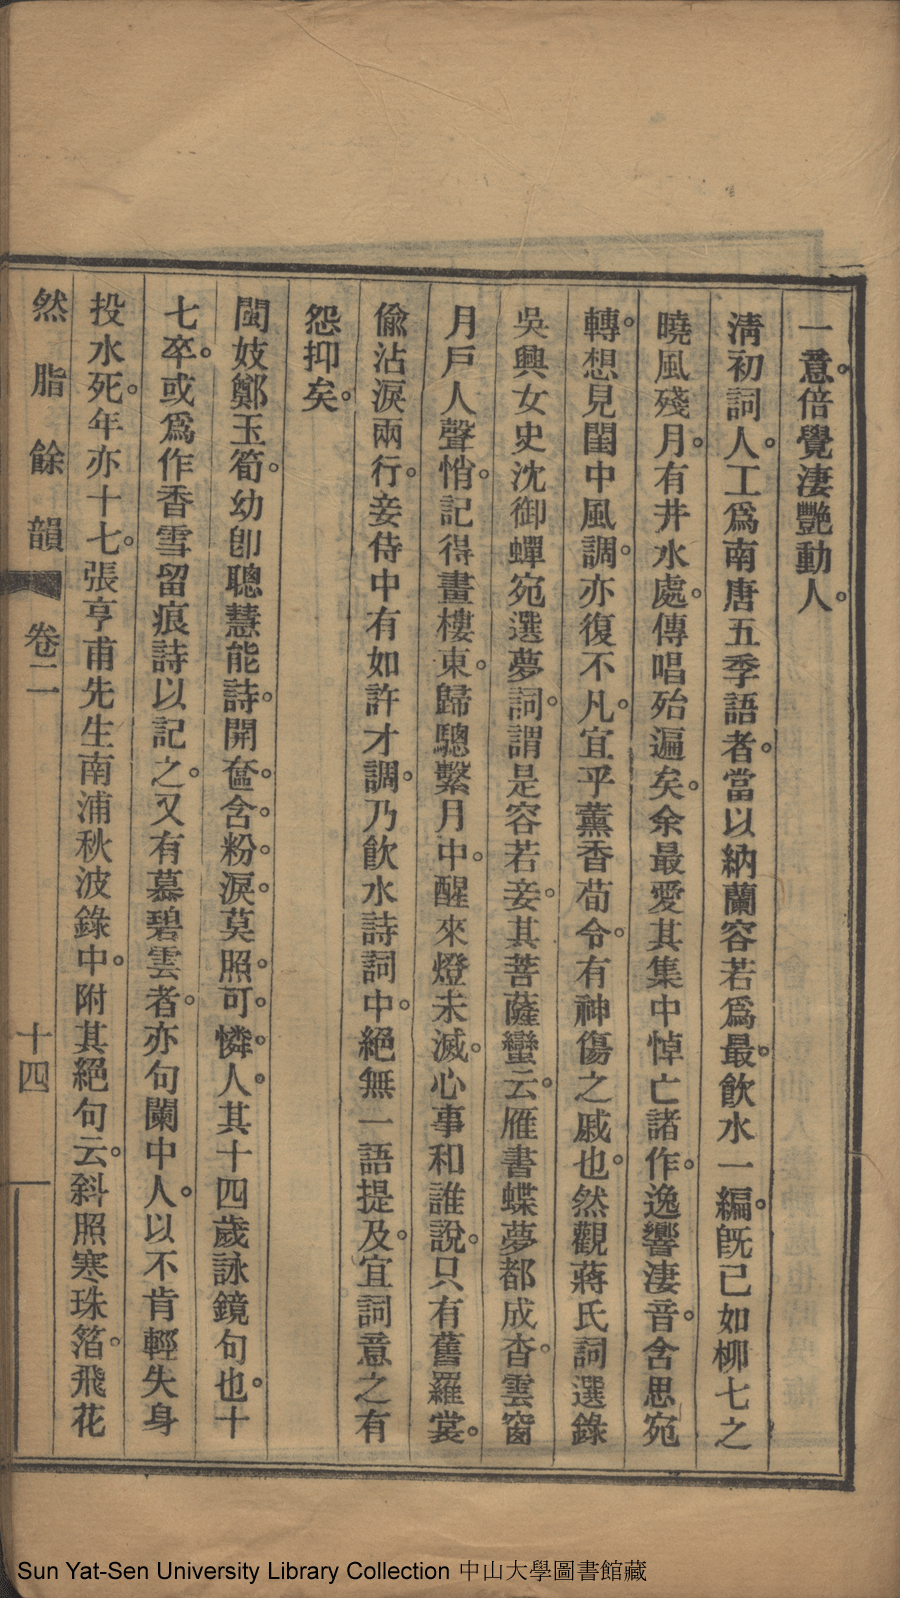 一意。倍覺淒艷動人。
淸初詞人。工爲南唐五季語者。當以納蘭容若爲最。飮水一編。旣已如柳七之
曉風殘月。有井水處。傳唱殆遍矣。余最愛其集中悼亡諸作。逸響淒音。含思宛
轉。想見閨中風調。亦復不凡。宜乎薰香荀令。有神傷之戚也。然觀蔣氏詞選錄
吳興女史沈御蟬宛選夢詞。謂是容若妾。其菩薩蠻云。雁書蝶夢都成杳。雲窗
月戶人聲悄。記得畫樓東。歸驄繫月中。醒來燈未滅。心事和誰說。只有舊羅裳。
偸沾淚兩行。妾侍中有如許才調。乃飮水詩詞中。絕無一語提及。宜詞意之有
怨抑矣。
閩妓鄭玉筍。幼卽聰慧能詩。開奩。含。粉。淚。莫照。可。憐。人。其十四歲詠鏡句也。十
七卒。或爲作香雪留痕詩以記之。又有慕碧雲者。亦句闌中人。以不肯輕失身
投水死。年亦十七。張亨甫先生南浦秋波錄中。附其絕句云。斜照寒珠箔。飛花
然脂餘韻 卷二 十四
Sun Yat-Sen University Library Collection 中山大學圖書館藏